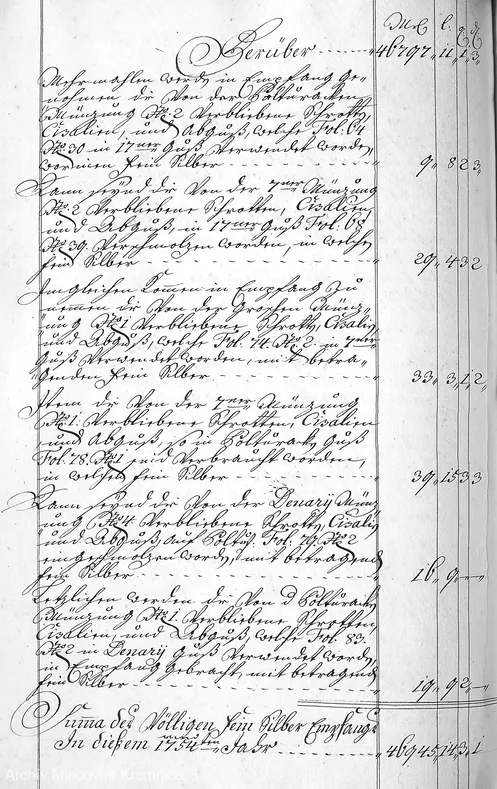 M̅k̅ l. q d
Herüber 46797. 11. 1. 3.
Mehrmahlen werden in Empfang ge-
nohmen die von der Polturacken
Münzung No. 2 Verbliebene Schrotten,
Cisalien, und Abguß, welche Fol. 64
No. 30 in 17ner Guß Verwendet worden,
worinen fein Silber 9. 8 2 3.
Dann seynd die Von der 7ner Münzung
No. 2 Verbliebene Schrotten, Cisalien
und Abguß, in 17ner Guß Fol. 68
No. 39. Verschmolzen worden, in welchen
fein Silber 29. 4 3 2
Imgleichen komen in Empfang zu
nemmen die Von der Groschen Münz-
ung No. 1 Verbliebene Schrott, Cisalien
und Abguß, welche Fol. 74. No. 2. in 7ner
Guß Verwendet worden, mit betra-
genden fein Silber 33. 3. 1. 2.
Item die Von der 7ner Münzung
No. 1. Verbliebene Schrotten, Cisalien
und Abguß, so in Polturacken Guß
Fol. 78. No. 1 seind Verbraucht worden,
in welchen fein Silber 39. 15 3 3
Dann seynd die Von der Denarij Münz-
ung No. 4 Verbliebene Schrott, Cisalien
und Abguß auf Poltur. Fol. 79. No. 2
eingeschmolzen worden, mit betragend
fein Silber 16. 9. —
Letzlichen werden die Von d Polturacken
Münzung No. 1. Verbliebene Schrotten,
Cisalien, und Abguß, welche Fol. 83.
No. 2 in Denarij Guß Verwendet worden,
in Empfang gebracht, mit betragend
fein Silber 19. 9 2. —
Summa des Völligen fein Silber Empfangs
In diesem 1754ten Jahr 46945. 14 3. 1